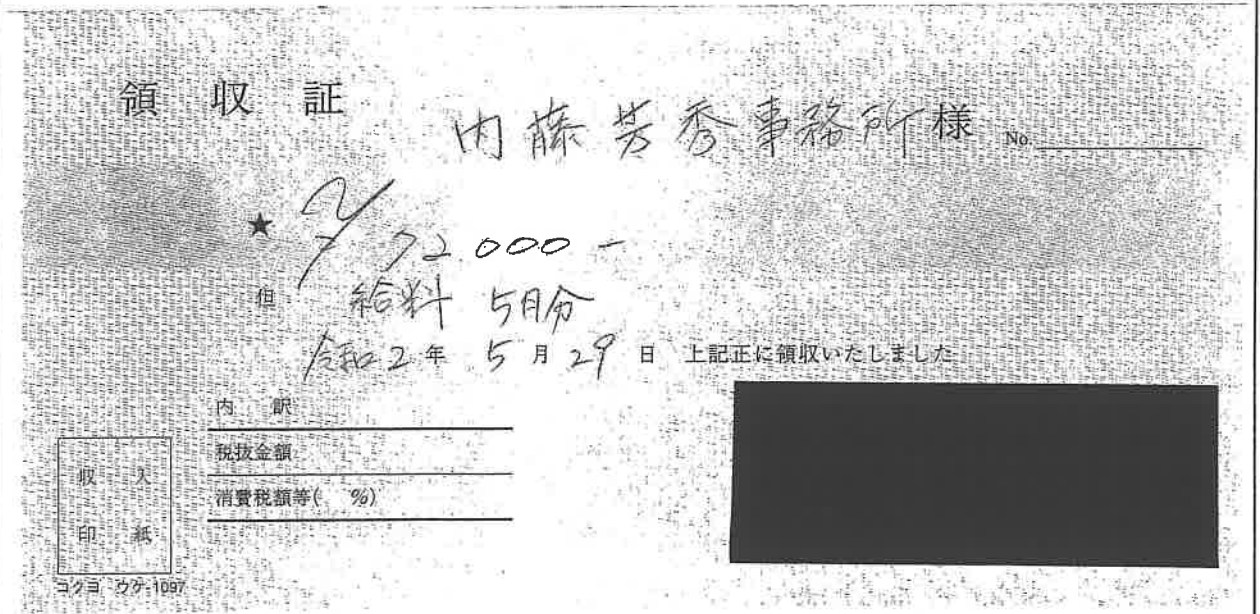 領収証
内藤芳秀事務所様 No.
★ ¥72000-
但 給料 5月分
令和2年5月29日 上記正に領収いたしました
内訳
税抜金額
消費税額等( %)
収入
印紙
コクヨ ウケ-1097